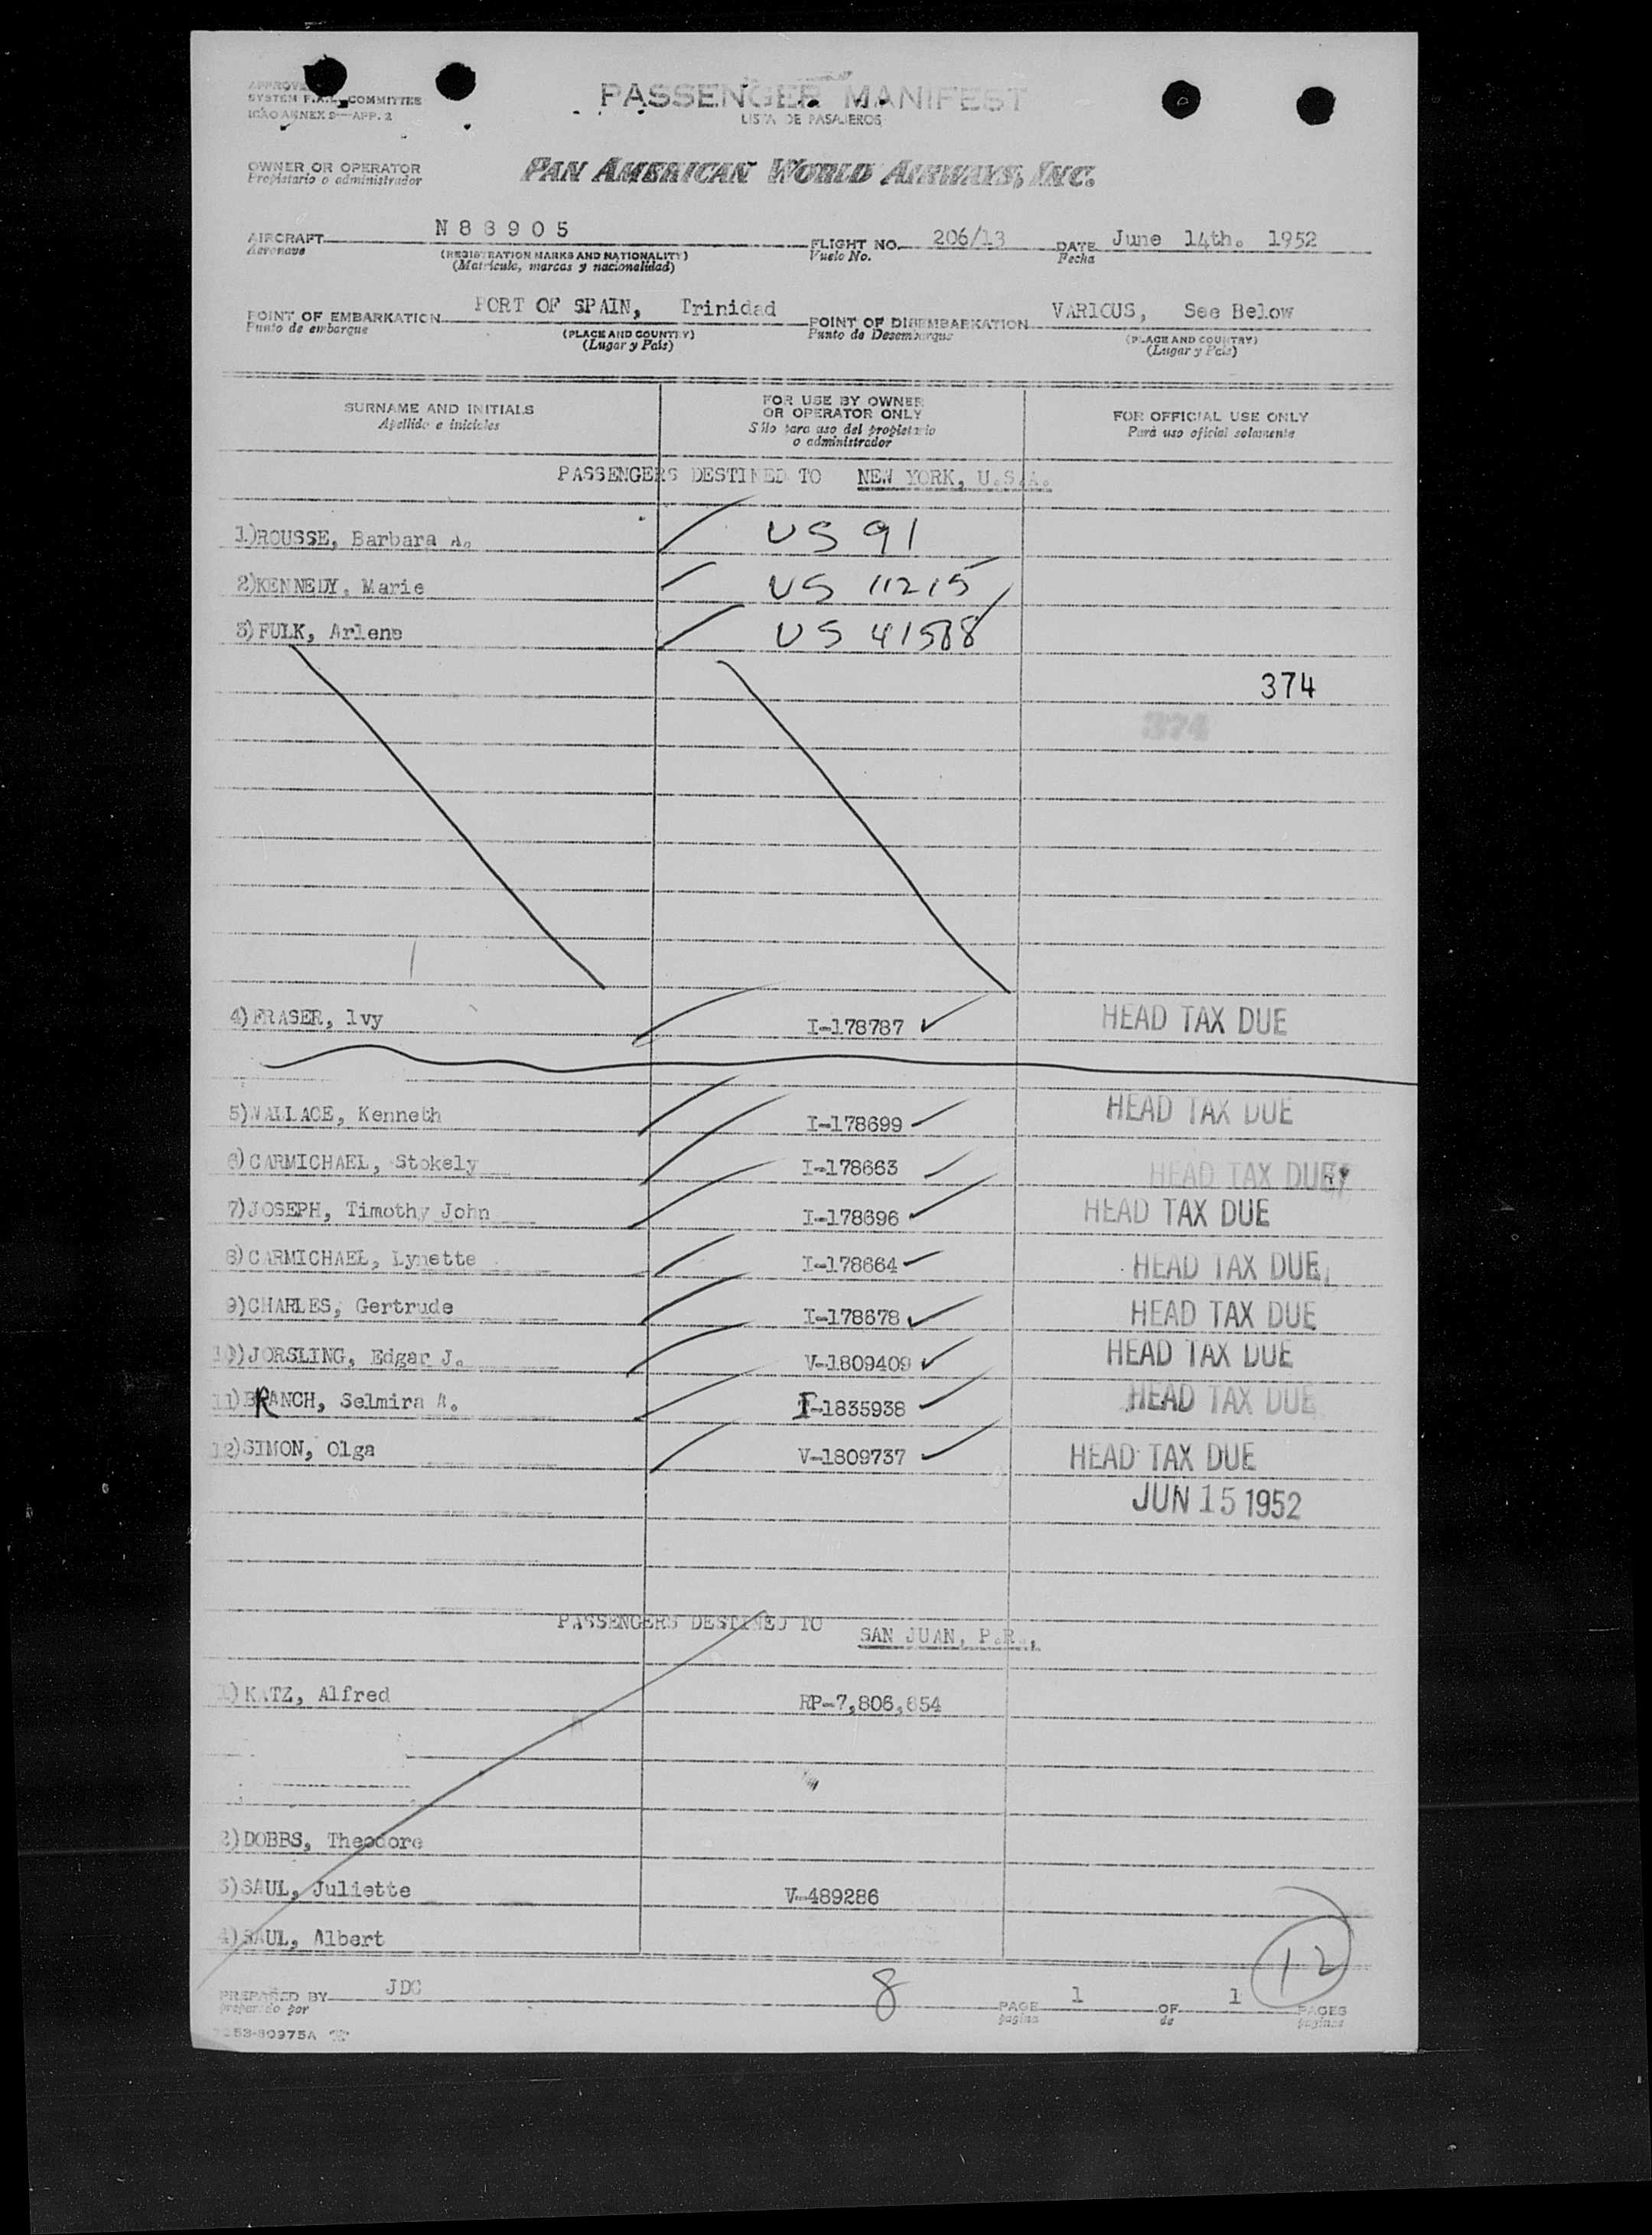 SYSTEM F.A.L. COMMITTEE
ICAO ANNEX 9—APP. 2
PASSENGER MANIFEST
LISTA DE PASAJEROS
OWNER OR OPERATOR
Propietario o administrador
PAN AMERICAN WORLD AIRWAYS, INC.
AIRCRAFT N 8 8 9 0 5 FLIGHT NO. 206/13 DATE June 14th. 1952
Aeronave (REGISTRATION MARKS AND NATIONALITY) Vuelo No. Fecha
(Matrícula, marcas y nacionalidad)
POINT OF EMBARKATION PORT OF SPAIN, Trinidad POINT OF DISEMBARKATION VARIOUS, See Below
Punto de embarque (PLACE AND COUNTRY) Punto de Desembarque (PLACE AND COUNTRY)
(Lugar y País) (Lugar y País)
SURNAME AND INITIALS FOR USE BY OWNER OR OPERATOR ONLY FOR OFFICIAL USE ONLY
Apellido e iniciales Sólo para uso del propietario o administrador Para uso oficial solamente
PASSENGERS DESTINED TO NEW YORK, U.S.A.
1)ROUSSE, Barbara A. US 91
2)KENNEDY, Marie US 11215
3)FULK, Arlene US 41588
374
374
4)FRASER, lvy I-178787 HEAD TAX DUE
5)WALLACE, Kenneth I-178699 HEAD TAX DUE
6)CARMICHAEL, Stokely I-178663 HEAD TAX DUE
7)JOSEPH, Timothy John I-178696 HEAD TAX DUE
8)CARMICHAEL, Lynette I-178664 HEAD TAX DUE
9)CHARLES, Gertrude I-178678 HEAD TAX DUE
10)JORSLING, Edgar J. V-1809409 HEAD TAX DUE
11)BRANCH, Selmira A. I-1835938 HEAD TAX DUE
12)SIMON, Olga V-1809737 HEAD TAX DUE
JUN 15 1952
PASSENGERS DESTINED TO SAN JUAN, P.R.,
1)KATZ, Alfred RP-7,806,654
2)DOBBS, Theodore
3)SAUL, Juliette V-489286
4)SAUL, Albert
12
PREPARED BY JDC 8 PAGE 1 OF 1 PAGES
preparado por página de páginas